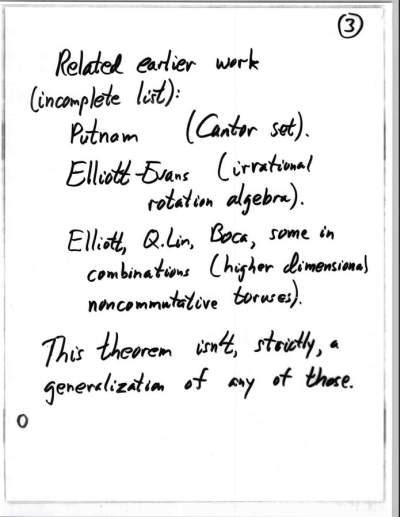 3
Related earlier work
(incomplete list):
Putnam (Cantor set).
Elliott-Evans (irrational
rotation algebra).
Elliott, Q.Lin, Boca, some in
combinations (higher dimensional
noncommutative toruses).
This theorem isn't, strictly, a
generalization of any of those.